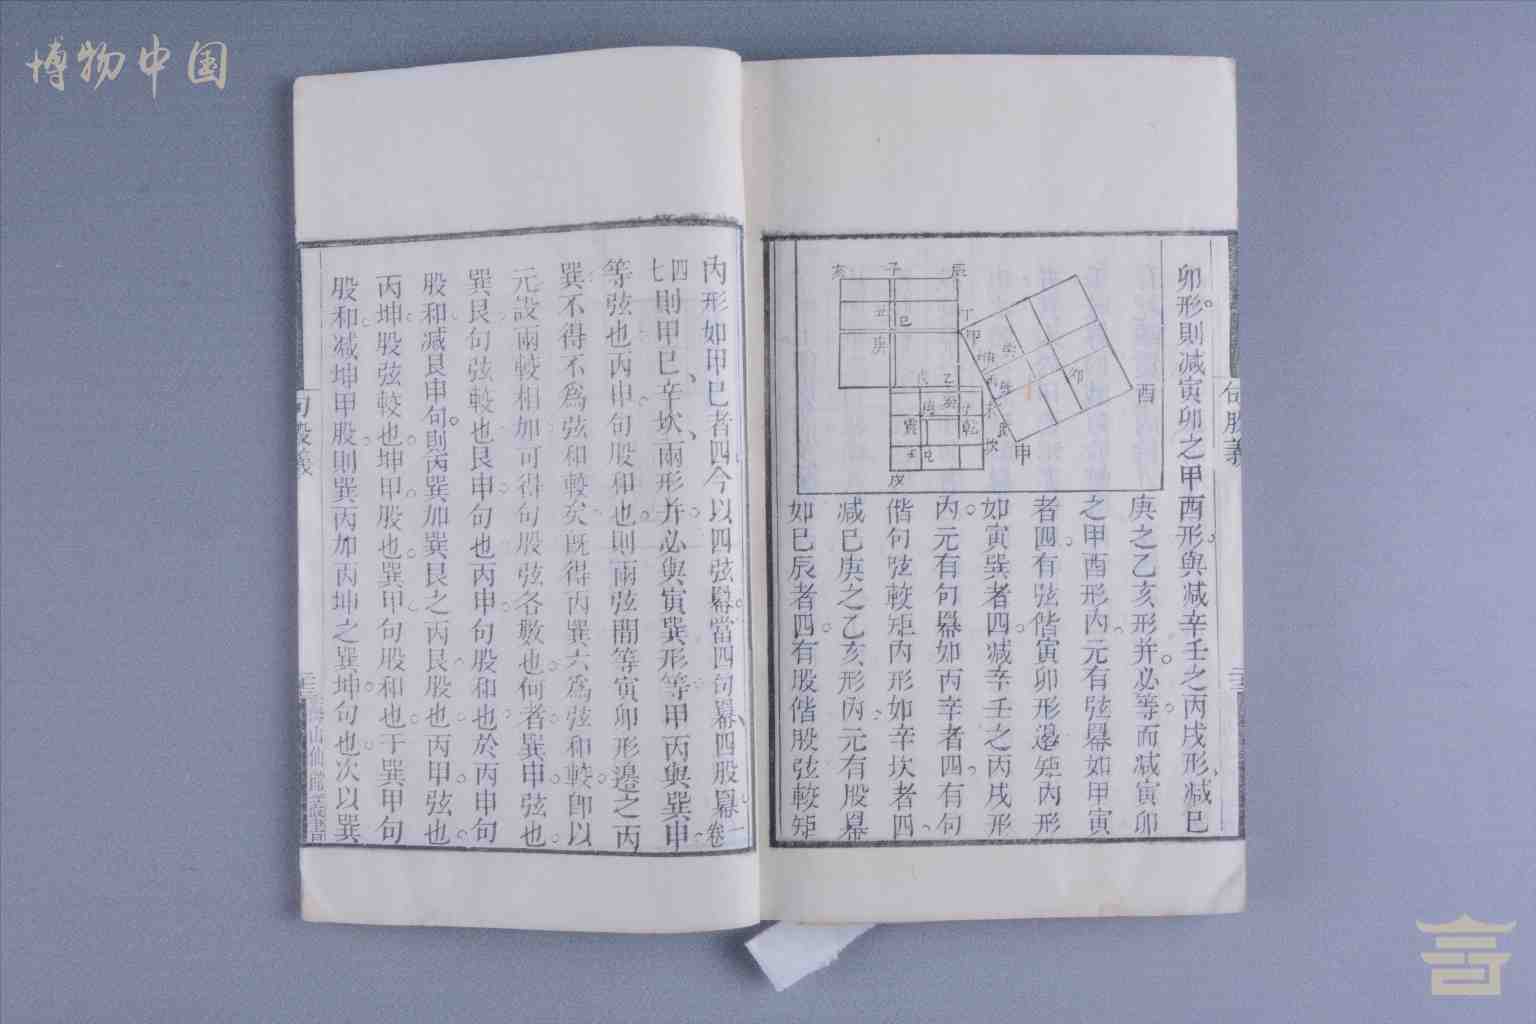 博物中国
卯形。則減寅卯之甲酉形。與減辛壬之丙戌形、減巳
庚之乙亥形并。必等。而減寅卯
之甲酉形內。元有弦冪如甲寅
者四。有弦偕寅卯形邊矩內形
如寅巽者四。減辛壬之丙戌形
內。元有句冪如丙辛者四。有句
偕句弦較矩內形如辛坎者四。
減巳庚之乙亥形內。元有股冪
如巳辰者四。有股偕股弦較矩
亥 子 辰
丑 巳 丁
庚 甲
坤
卯
酉
乙
癸
震 乾
坎 申
戌
句股義
內形如甲巳者四。今以四弦冪。當四句冪、四股冪。卷一
四七
則甲巳、辛坎、兩形并。必與寅巽形等。甲丙與巽申。
等弦也。丙申句股和也。則兩弦間等寅卯形邊之丙
巽。不得不為弦和較矣。既得丙巽六為弦和較。即以
元設兩較相加。可得句股弦各數也。何者。巽申弦也。
巽艮句弦較也。艮申句也。丙申句股和也。於丙申句
股和減艮申句。則丙巽加巽艮之丙艮股也。丙甲弦也。
丙坤股弦較也。坤甲股也。巽甲句股和也。于巽甲句
股和減坤甲股。則巽丙加丙坤之巽坤。句也。次以巽
句股義
海山仙館叢書